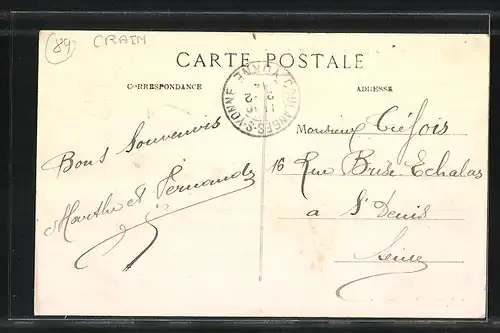 89 CRAIN
CARTE POSTALE
CORRESPONDANCE
ADRESSE
COULANGES-S-YONNE
YONNE
Bons Souvenirs
Marthe et Fernande
Monsieur Tréfois
16 Rue Brise Echalas
a St Denis
Seine